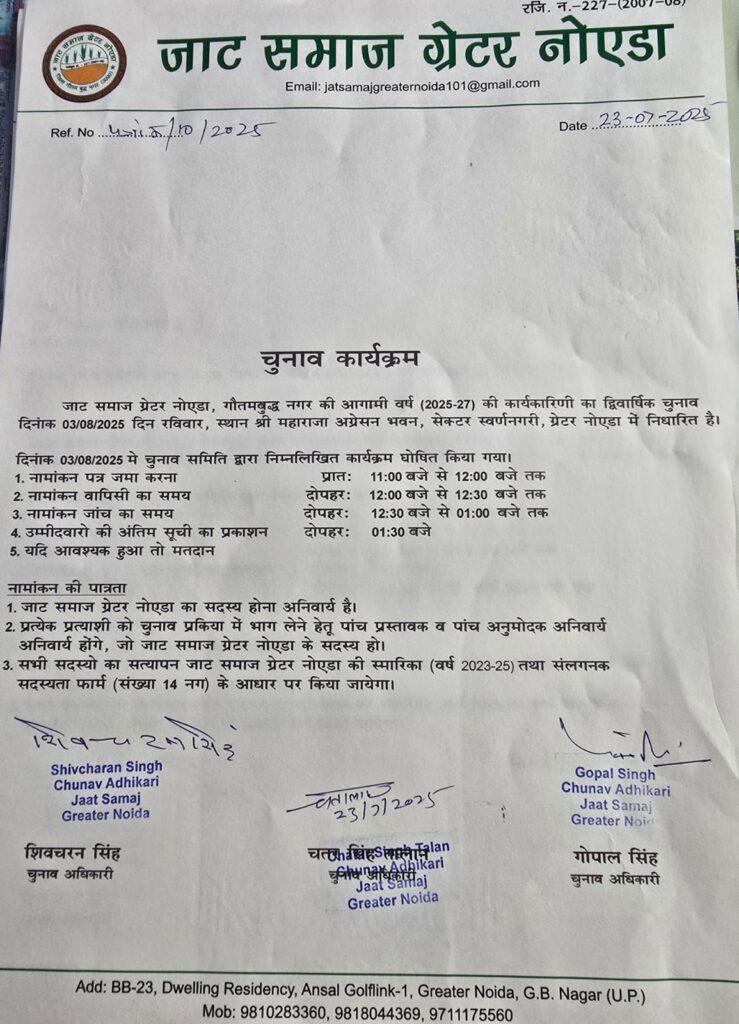 रजि. न.–227–(2007-08)
जाट समाज ग्रेटर नोएडा
Email: jatsamajgreaternoida101@gmail.com
Ref. No पत्रांक/10/2025
Date 23-07-2025
चुनाव कार्यक्रम
जाट समाज ग्रेटर नोएडा, गौतमबुद्ध नगर की आगामी वर्ष (2025-27) की कार्यकारिणी का द्विवार्षिक चुनाव
दिनांक 03/08/2025 दिन रविवार, स्थान श्री महाराजा अग्रेसन भवन, सेक्टर स्वर्णनगरी, ग्रेटर नोएडा में निधारित है।
दिनांक 03/08/2025 मे चुनाव समिति द्वारा निम्नलिखित कार्यक्रम घोषित किया गया।
1. नामांकन पत्र जमा करना प्रातः 11:00 बजे से 12:00 बजे तक
2. नामांकन वापिसी का समय दोपहरः 12:00 बजे से 12:30 बजे तक
3. नामांकन जांच का समय दोपहरः 12:30 बजे से 01:00 बजे तक
4. उम्मीदवारो की अंतिम सूची का प्रकाशन दोपहरः 01:30 बजे
5. यदि आवश्यक हुआ तो मतदान
नामांकन की पात्रता
1. जाट समाज ग्रेटर नोएडा का सदस्य होना अनिवार्य है।
2. प्रत्येक प्रत्याशी को चुनाव प्रकिया में भाग लेने हेतू पांच प्रस्तावक व पांच अनुमोदक अनिवार्य
अनिवार्य होंगे, जो जाट समाज ग्रेटर नोएडा के सदस्य हो।
3. सभी सदस्यो का सत्यापन जाट समाज ग्रेटर नोएडा की स्मारिका (वर्ष 2023-25) तथा संलगनक
सदस्यता फार्म (संख्या 14 नग) के आधार पर किया जायेगा।
शिवचरनसिंह
Shivcharan Singh
Chunav Adhikari
Jaat Samaj
Greater Noida
शिवचरन सिंह
चुनाव अधिकारी
23/7/2025
चतर सिंह तालान
चुनाव अधिकारी
Chatar Singh Talan
Chunav Adhikari
Jaat Samaj
Greater Noida
Gopal Singh
Chunav Adhikari
Jaat Samaj
Greater Noida
गोपाल सिंह
चुनाव अधिकारी
Add: BB-23, Dwelling Residency, Ansal Golflink-1, Greater Noida, G.B. Nagar (U.P.)
Mob: 9810283360, 9818044369, 9711175560